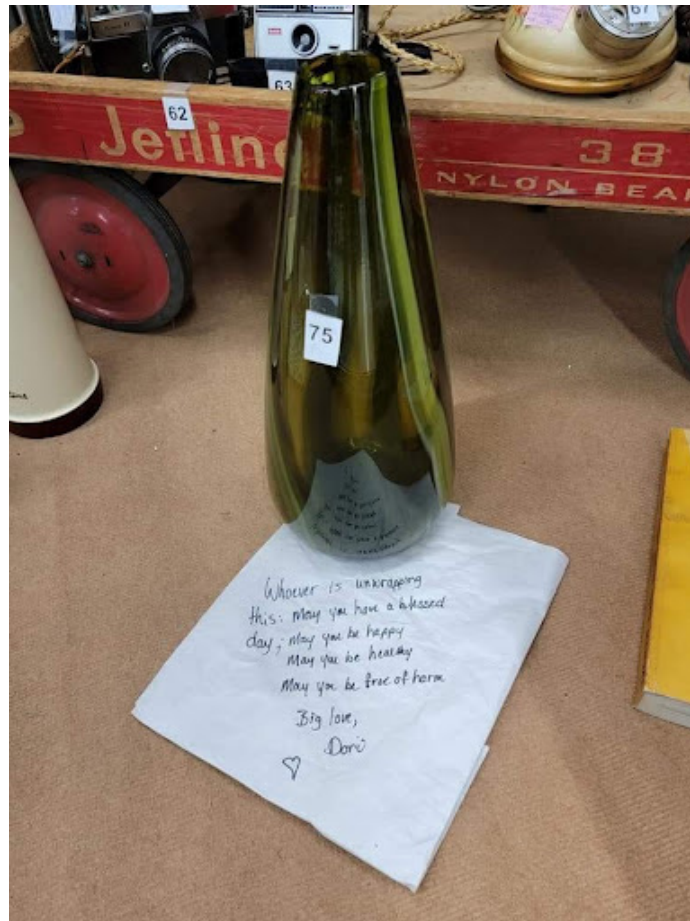 62
63
67
Jetline
38
NYLON BEA
75
Whoever is unwrapping
this: May you have a blessed
day; May you be happy
May you be healthy
May you be free of harm
Big love,
Dori